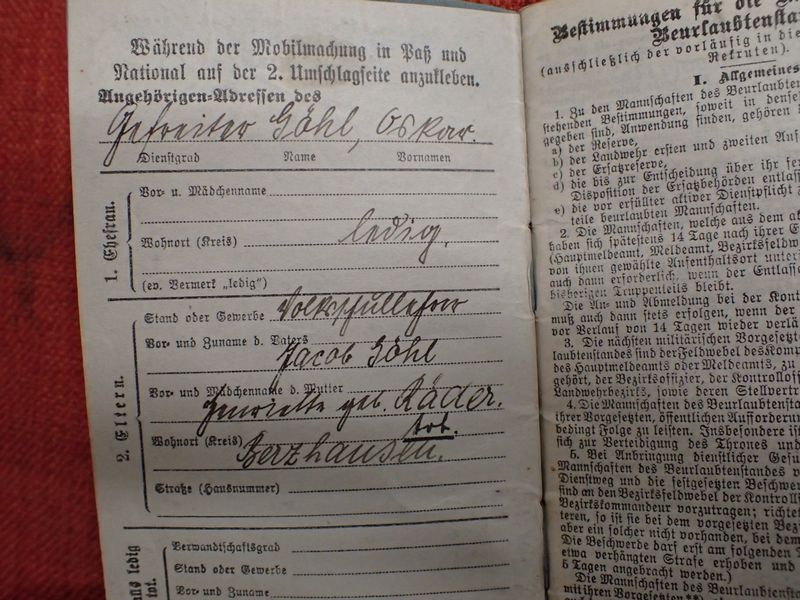 Während der Mobilmachung in Paß und
National auf der 2. Umschlagseite anzukleben.
Angehörigen-Adressen des
Gefreiter Göhl, Oskar.
Dienstgrad Name Vornamen
1. Ehefrau.
Vor- u. Mädchenname
Wohnort (Kreis) ledig.
(ev. Vermerk „ledig")
2. Eltern.
Stand oder Gewerbe Volksschullehrer
Vor- und Zuname d. Vaters
Jacob Göhl
Vor- und Mädchenname d. Mutter
Henriette geb. Räder.
tot.
Wohnort (Kreis) Berzhausen.
Straße (Hausnummer)
ledig
Verwandtschaftsgrad
Stand oder Gewerbe
Vor- und Zuname
Bestimmungen für die
Beurlaubtensta
(ausschließlich der vorläufig in die
Rekruten).
I. Allgemeines
1. Zu den Mannschaften des Beurlaubten
stehenden Bestimmungen, soweit in densel
gegeben sind, Anwendung finden, gehören
a) der Reserve,
b) der Landwehr ersten und zweiten Auf
c) der Ersatzreserve,
d) die bis zur Entscheidung über ihr fer
Disposition der Ersatzbehörden entlass
e) die vor erfüllter aktiver Dienstpflicht
teile beurlaubten Mannschaften.
2. Die Mannschaften, welche aus dem akt
haben sich spätestens 14 Tage nach ihrer E
(Hauptmeldeamt, Meldeamt, Bezirksfeldw
von ihnen gewählte Aufenthaltsort unter
auch dann erforderlich, wenn der Entlass
bisherigen Truppenteils bleibt.
Die An- und Abmeldung bei der Kont
muß auch dann stets erfolgen, wenn der
vor Verlauf von 14 Tagen wieder verlä
3. Die nächsten militärischen Vorgesetzt
laubtenstandes sind der Feldwebel des Komp
des Hauptmeldeamts oder Meldeamts, zu
gehört, der Bezirksoffizier, der Kontrolloff
Landwehrbezirks, sowie deren Stellvertr
4. Die Mannschaften des Beurlaubtensta
ihrer Vorgesetzten, öffentlichen Aufforderun
bedingt Folge zu leisten. Insbesondere ist
sich zur Verteidigung des Thrones und
5. Bei Anbringung dienstlicher Gesu
Mannschaften des Beurlaubtenstandes v
Dienstweg und die festgesetzten Beschwer
sind an den Bezirksfeldwebel der Kontroll
Bezirkskommandeur vorzutragen; richtet
teren, so ist sie bei dem vorgesetzten Bez
aber ein solcher nicht vorhanden, bei dem
Die Beschwerde darf erst am folgenden T
etwa verhängten Strafe erhoben und
5 Tagen angebracht werden.)
Die Mannschaften des Beurlaubtensta
mit ihren Vorgesetzten